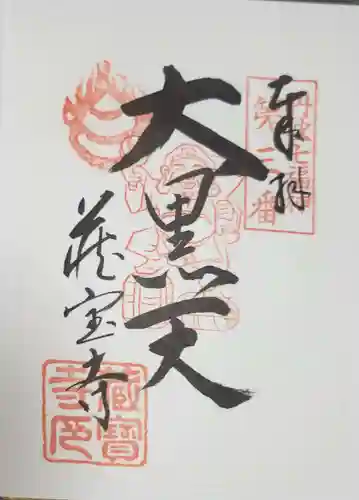 奉拝
丹波七福
第二番
大黒天
蔵宝寺
蔵寶寺印